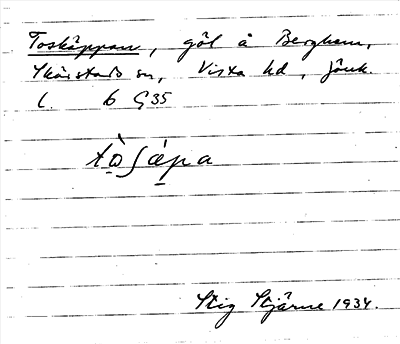 Toskäppan, göl å Berghem,
Skärstads sn, Vista hd, Jönk.
l. 6 G 35
tòʃäpa
Stig Stjärne 1934.